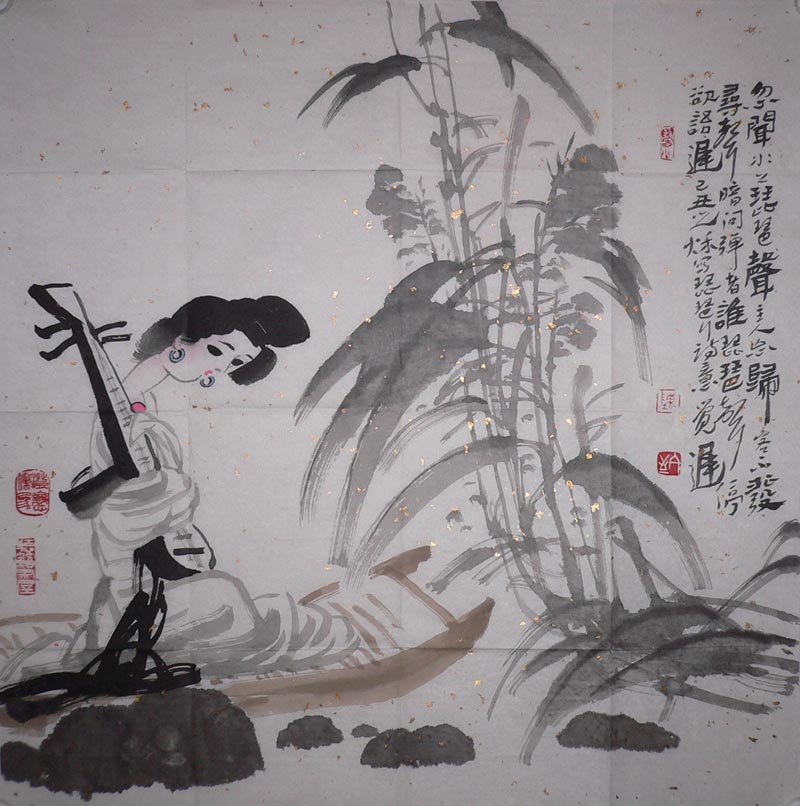 忽聞水上琵琶聲主人忘歸客不發
尋声暗问彈者誰琵琶声停
欲語遲己丑之秋写琵琶行诗意遲